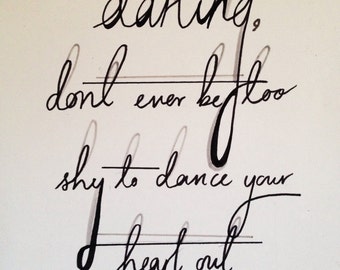 darling,
don't ever be too
shy to dance your
heart out